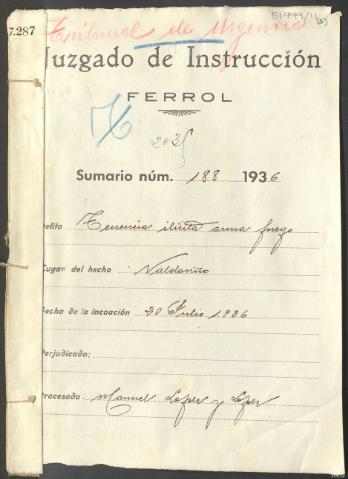 7.287
51499/1
Tribunal de Urgencia
Juzgado de Instrucción
FERROL
Sumario núm. 188 1936
elito Tenencia ilicita arma fuego
Lugar del hecho Valdoviño
Fecha de la incoación 20 Julio 1.936
Perjudicado:
Procesado Manuel Lopez y Lopez